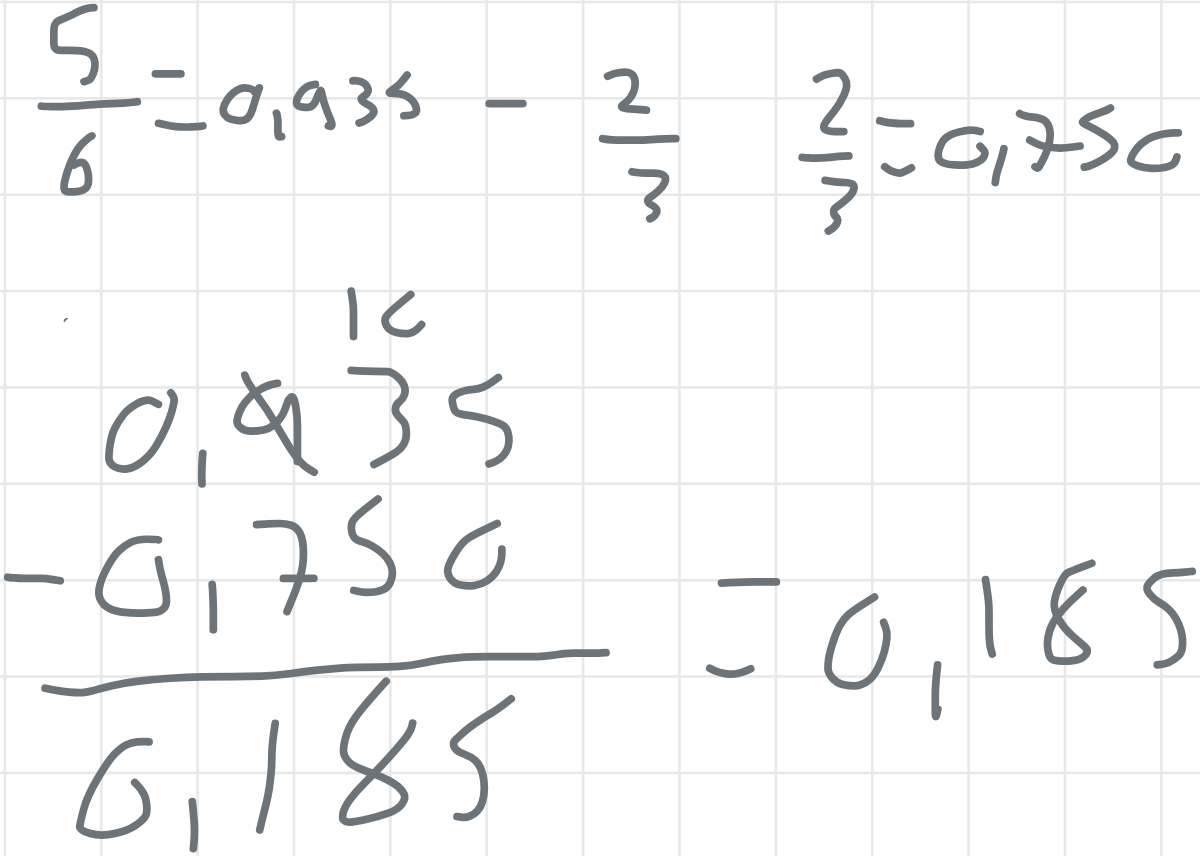 5/6 = 0,935 - 2/3 2/3 = 0,750
10
0,935
-0,750
0,185 = 0,185